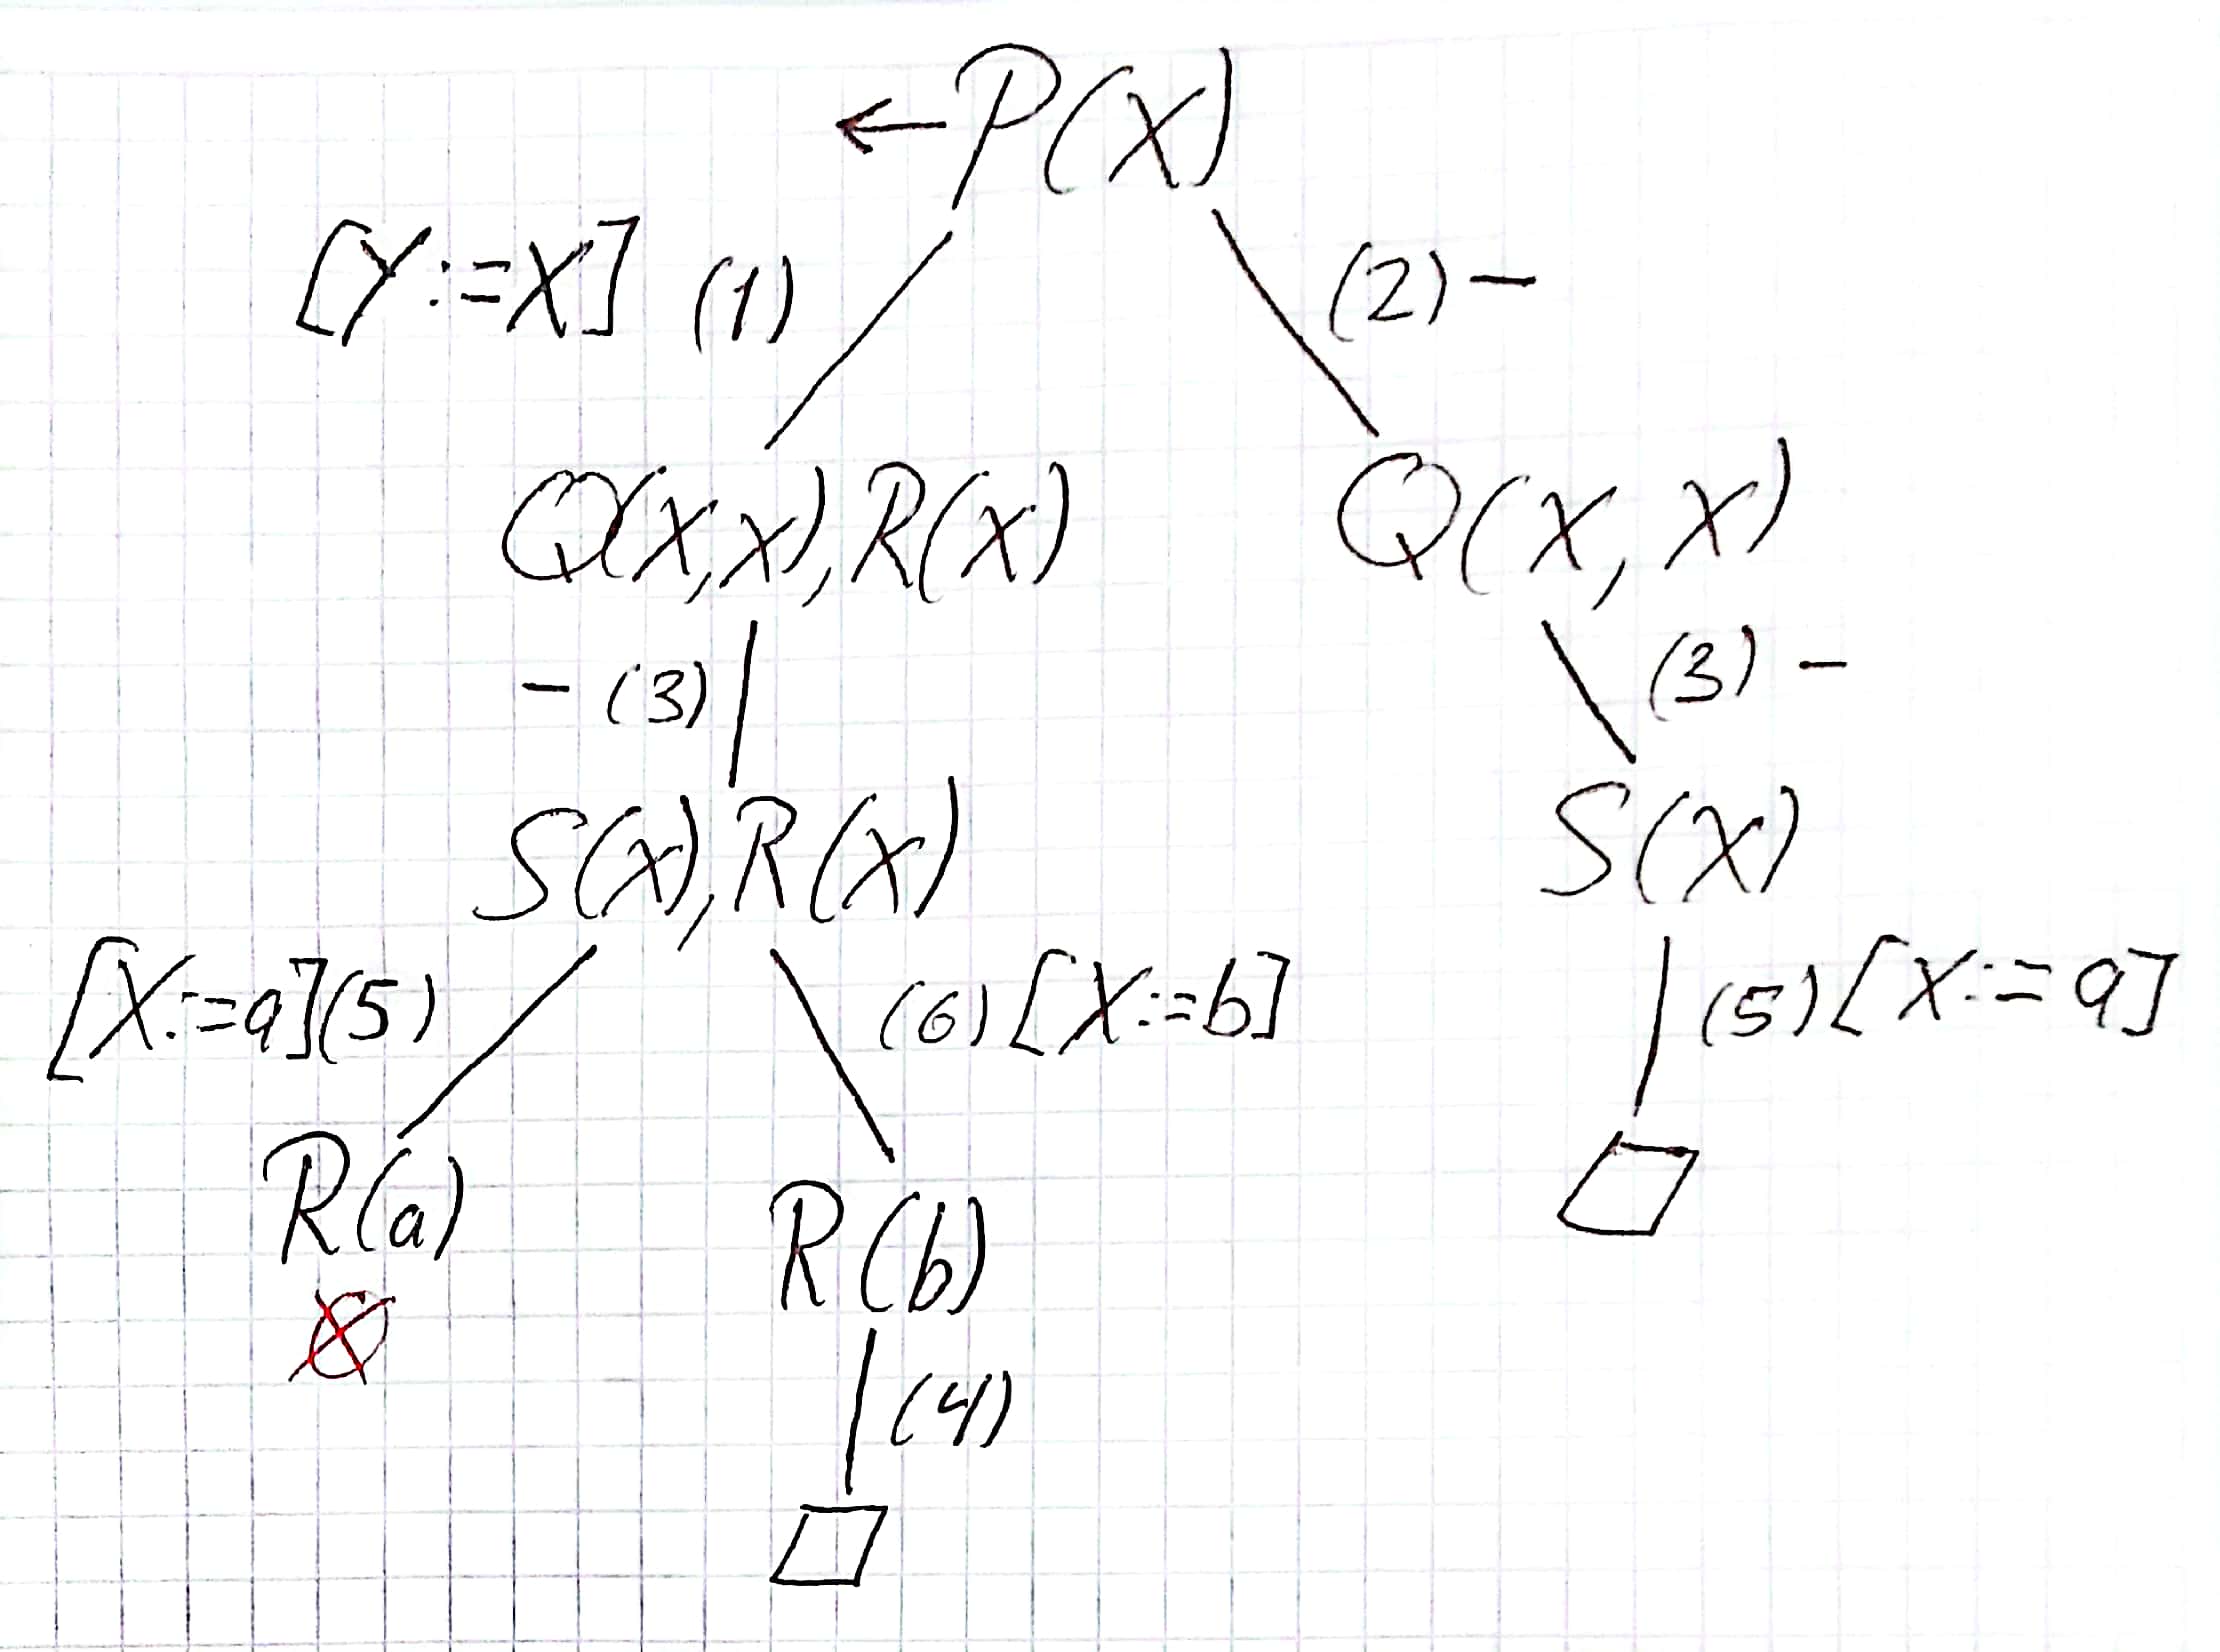 ←P(X)
[Y:=X] (1) (2) –
Q(X,X),R(X) Q(X,X)
– (3) (3) –
S(X),R(X) S(X)
[X:=a](5) (6)[X:=b] (5)[X:=a]
R(a) R(b)
(4)